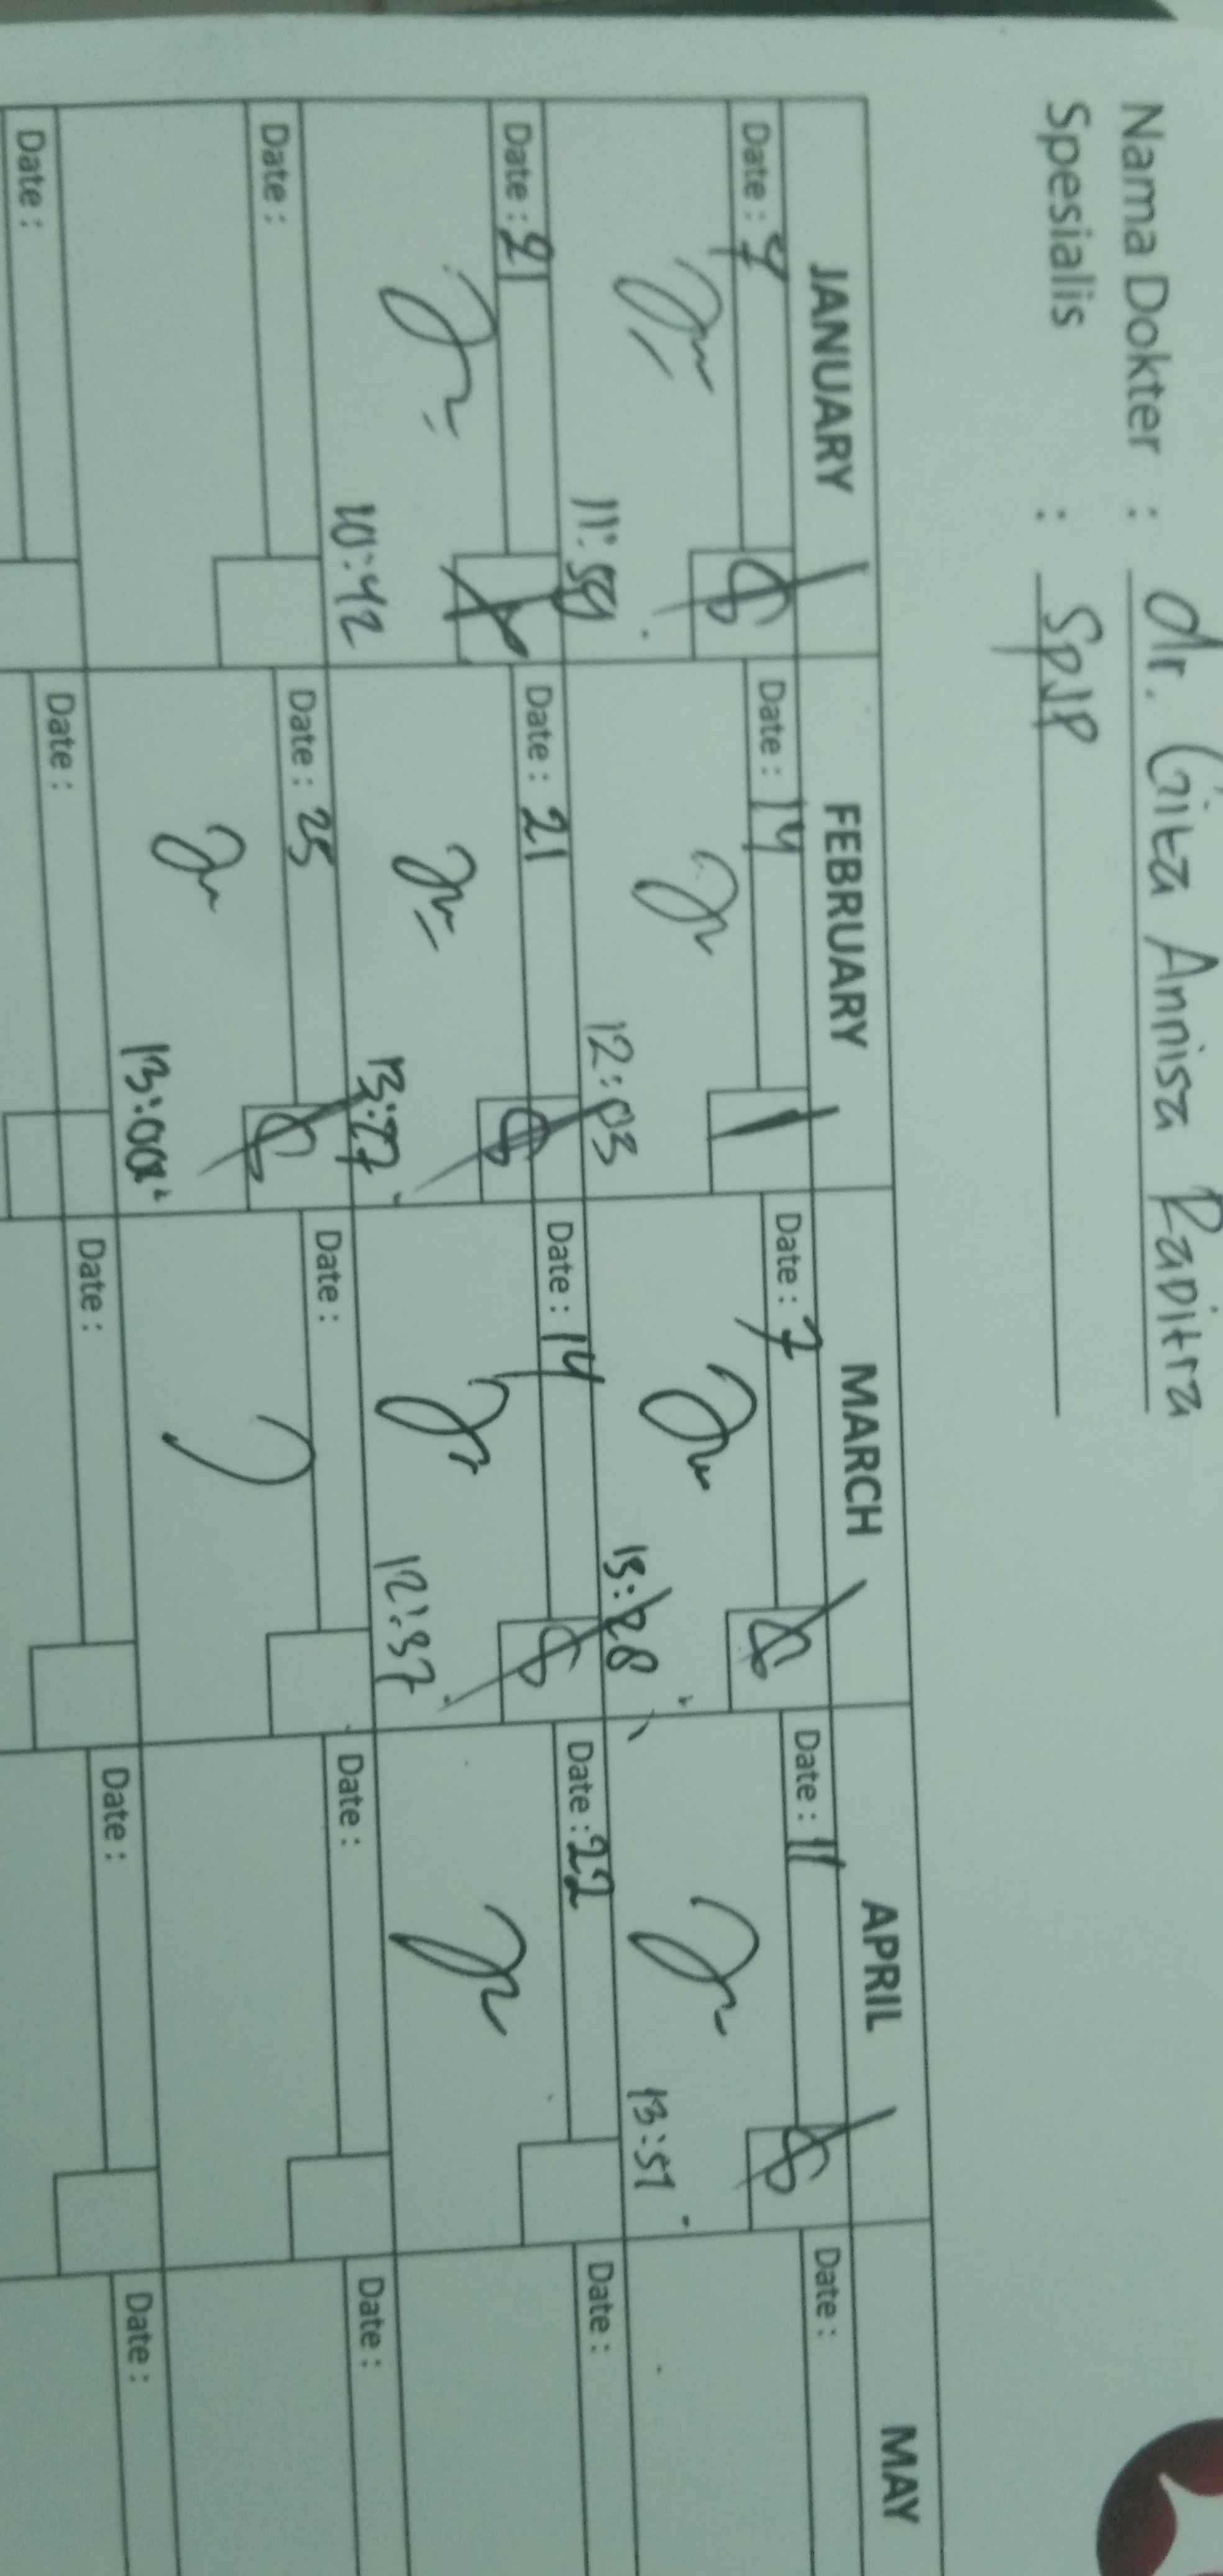 Nama Dokter : dr. Gita Annisa Raditra
Spesialis : SpJP
JANUARY FEBRUARY MARCH APRIL MAY
Date : 7 Date : 14 Date : 7 Date : 11 Date :
11:59 12:03 13:28 13:51
Date : 21 Date : 21 Date : 14 Date : 22 Date :
10:42 13:27 12:37
Date : Date : 25 Date : Date : Date :
13:00
Date : Date : Date : Date : Date :